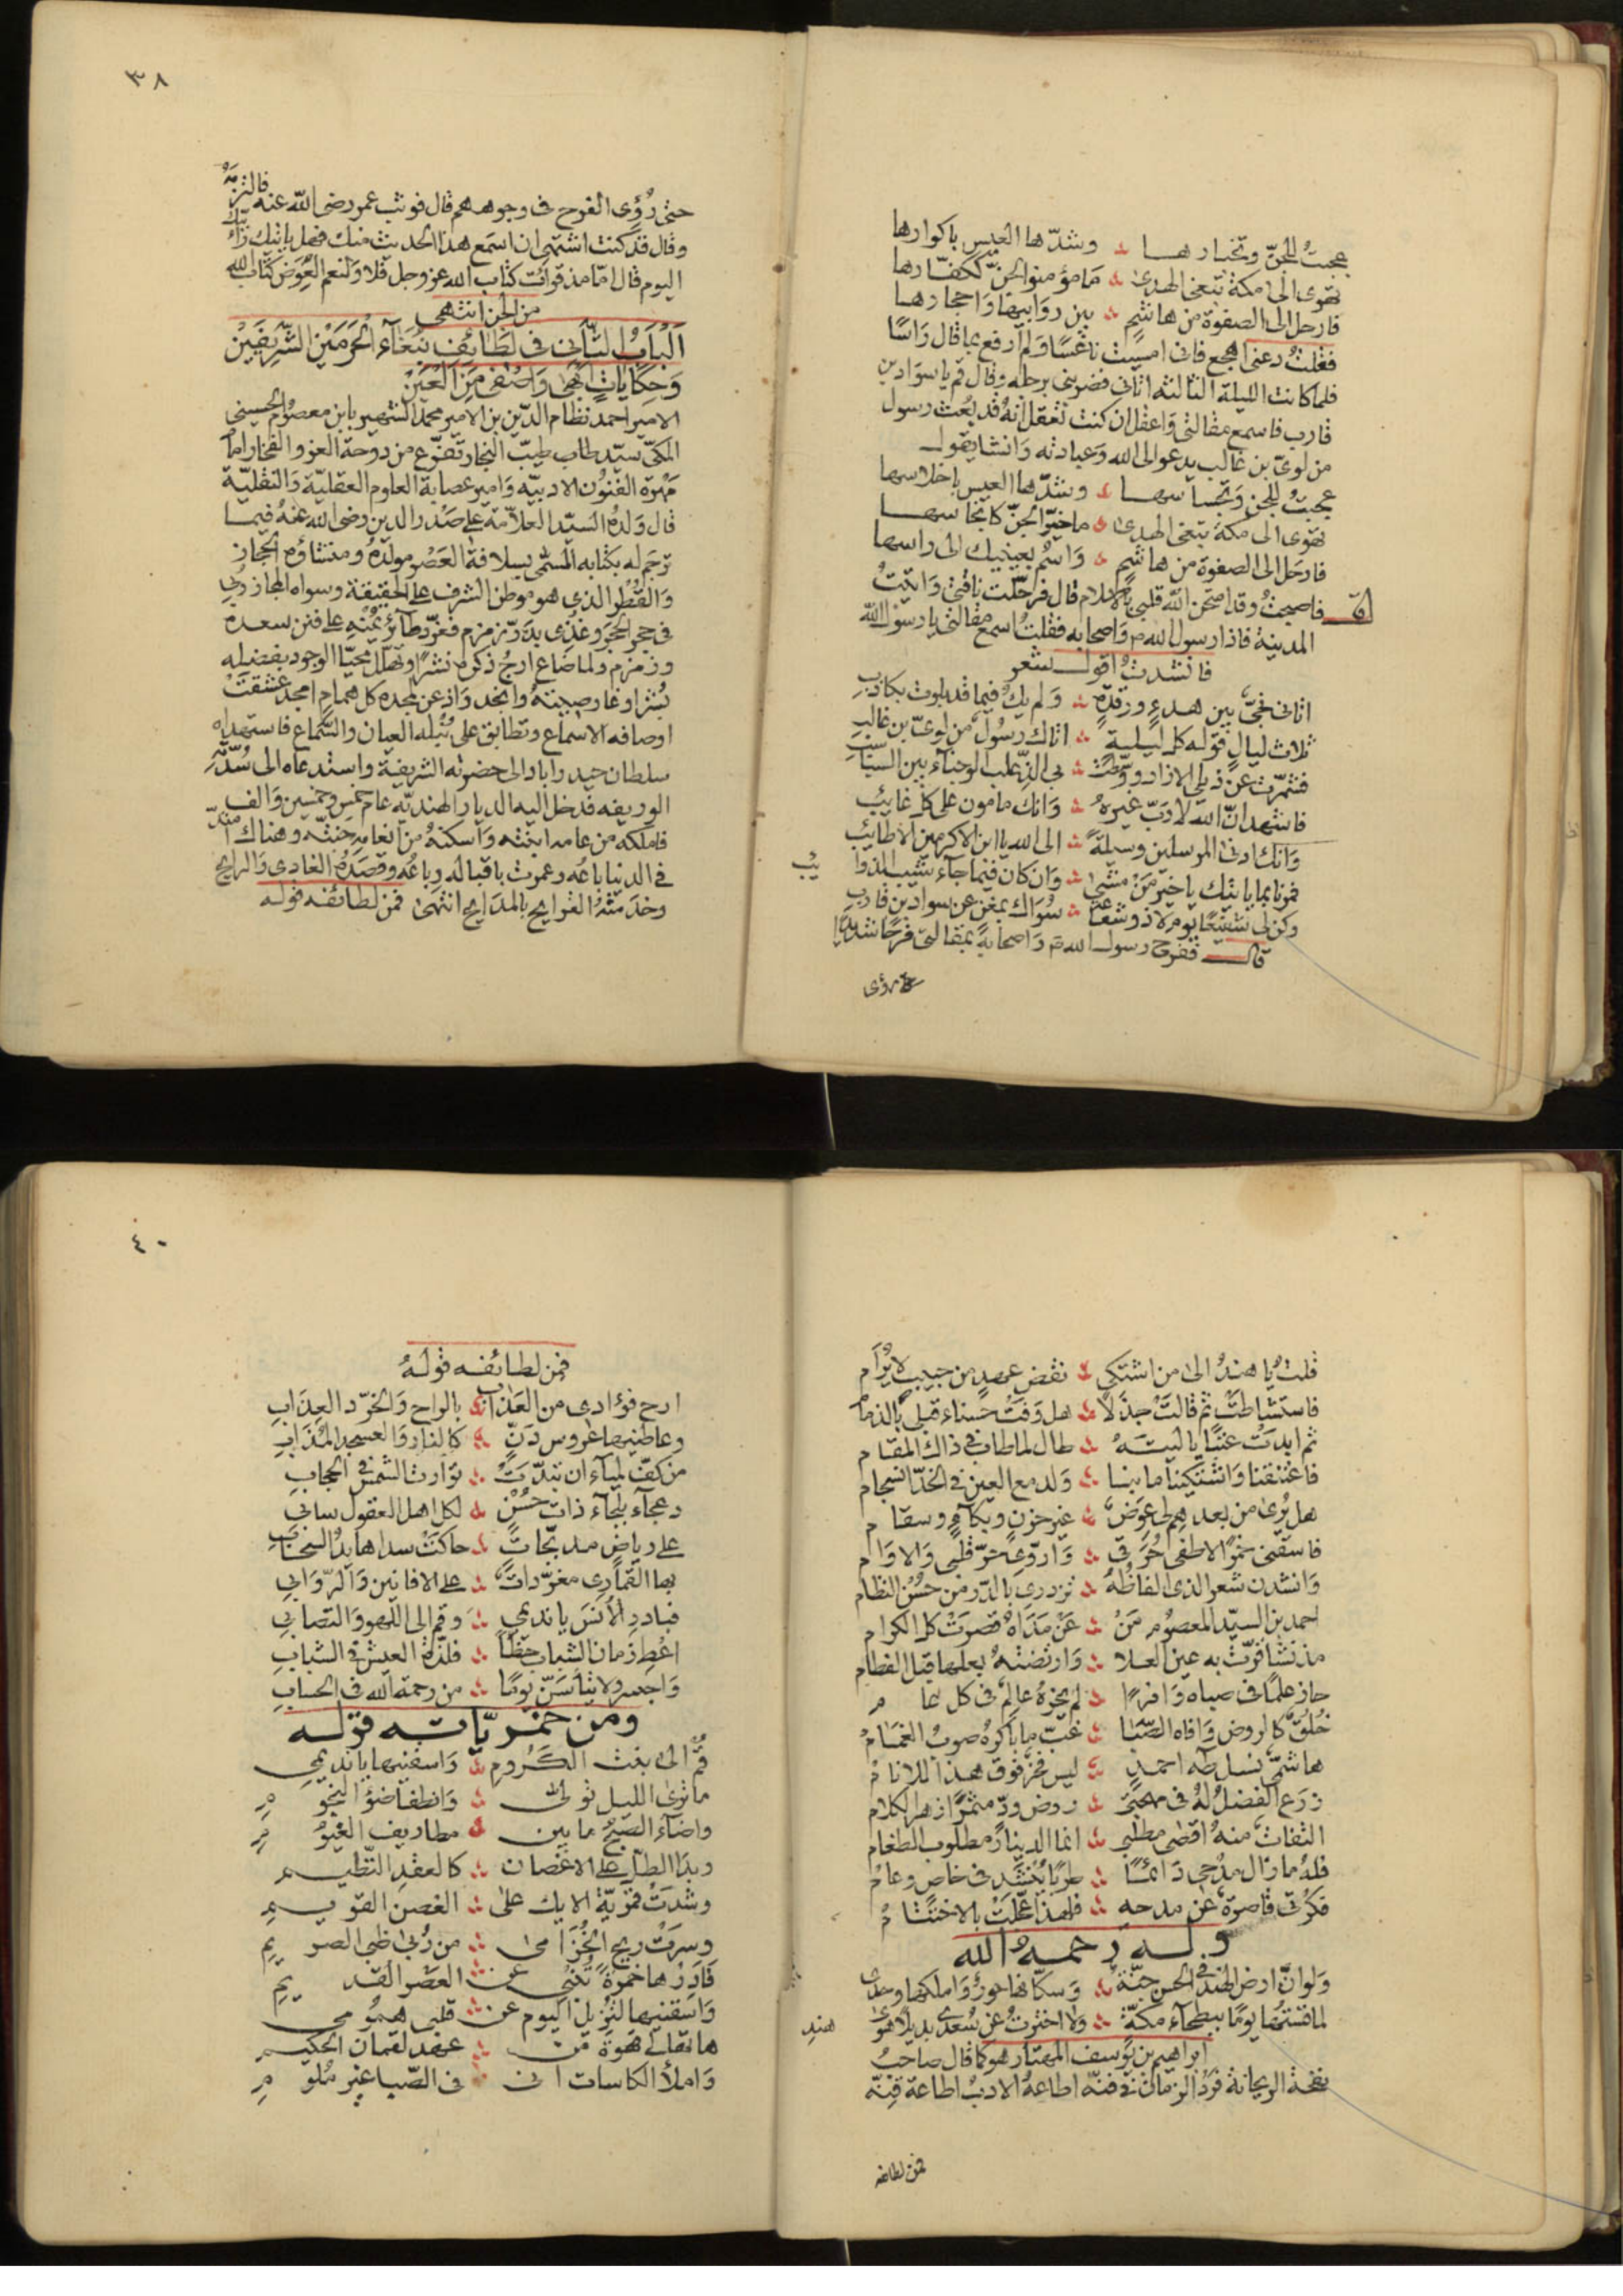 عجبتُ للجنّ وتخبارهـا ؞ وشدّها العيس باكوارها
تهوى الى مكة تبغى الهدى ؞ مَا مؤمنو الجنّ ككفّارها
فارحل الى الصفوة من هاشم ؞ بين روابيها وَاحجارها
فقلتُ دعنى اهجع فانى امسيت ناعسًا وَلم ارفع بما قال رَاسًا
فلما كانت الليلة الثالثه اتانى فضربنى برجله وقال قم يا سواد بن
قارب فاسمع مقالتى وَاعقل ان كنت تعقل انهُ قد بُعث رسول
من لوىّ بن غالب يدعو الى الله وَعبادته وَانشا يقول
عجبتُ للجن وَتجساسهـا ؞ وشدّها العيس باحلاسها
تهوى الى مكة تبغى الهدى ؞ ما خيّر الجنّ كانجاسهـا
فارحَل الى الصفوة من هاشم ؞ وَاسمُ بعينيك الى راسها
قال فاصبحتُ وقد امتحن الله قلبى بالاسلام قال فرحّلت ناقتى وَاتيتُ
المدينة فاذا رسول الله م وَاصحابه فقلتُ اسمع مقالتى يا رسول الله
فانشدتُ اقول شعر
اتانى نجىّ بين هدءٍ ورقدةٍ ؞ وَلم يكُ فيما قد بلوت بكاذبِ
ثلاث ليالٍ قوله كل ليلـة ؞ اتاك رسُول من لوىّ بن غالبِ
فشمّرت عن ذيلى الازار ووسّطت ؞ بى الذِعلب الوجنآء بين السباسبِ
فاشهد انّ الله لا رَبّ غيرهُ ؞ وَانك مامون على كل غائبِ
وَانك ادنى المرسلين وسيلةً ؞ الى الله يا ابن الاكرمين الاطائبِ
فمرنا بما ياتيك يا خير مَنْ مشى ؞ وَان كان فيما جآء شيب الذوا ئبُ
وكن لى شفيعًا يوم لا ذو شفاعةٍ ؞ سوَاك بمغنٍ عن سواد بن قاربِ
قال ففرح رسول الله م وَاصحابهُ بمقالتى فرحًا شديدًا
حتى رؤى
٣٨
حتى رُؤى الفرح فى وجوههم قال فوثب عمر رضى الله عنه فالتزمَهُ
وقال قد كنت اشتهى ان اسمع هذا الحديث منك فهل ياتيك رَئيُّك
اليوم قال امّا مذ قرات كتاب الله عزوجل فلا وَلنعم العِوَض كتاب الله
من الجن انتهى
اَلبَابُ الثّانِى فى لطَائِف نُبَغَآءِ الحَرَمَيْنِ الشّرِيفَيْنِ
وَحِكَايَاتٍ هِىَ وَاصفى مِنَ العَيْنْ
الامير احمد نظام الدّين بن الامير محمد الشهير بابن معصوم الحسينى
المكّى سيّد طاب طيّب النجار تفرّع من دوحة العز والفخار امامُ
مَهَرَة الفنُوُن الادبيّه وَامير عصابة العلوم العقليّة وَالنقليّة
قال وَلدُهُ السيّد العلاّمة على صَدْر الدين رضى الله عَنهُ فيما
ترجَم له بكتابه المسمّى بسلافة العَصْر مولدُهُ ومنشاؤه الحجاز
وَالقُطْر الذى هو موطن الشرف على الحقيقة وسواه المجاز رُبّى
فى حجر الحِجر وغُذِى بدَرّ زمزم فغرّد طآئر يُمْنِهِ على فنن سعده
وزمزم ولما ضَاع ارجُ ذكره نشرًا وتهلّل محيّا الوجود بفضله
بُشْرًا وغار صيتهُ وانجد وَاذعن لمجده كل همام امجد عشقتْ
اوصافه الاسماع وتطابق على نُبله العيان والسَّماع فاستهداه
سلطان حيدراباد الى حضرته الشريفة واستدعاه الى سُدّتِهِ
الوريفه فدخل اليه الديار الهنديّه عام خمس وخمسين وَالف
فاملكه من عامه ابنته وَاسكنهُ من انعامه جنته وهناك امتدّ
فى الدنيا باعُه وعمرت باقباله رباعُه وقصَدهُ الغادى وَالرايح
وخدَمتهُ القرايح بالمدَايح انتهى فمن لطائفه قوله
قلتُ يا هندُ الى من اشتكى ؞ نقضَ عهدٍ من حبيبٍ لا يُرَام
فاستشاطتْ ثم قالتْ جذلاً ؞ هل وَفتْ حَسناء قبلى بالذمام
ثم ابدتْ عتبًا يا ليتـهُ ؞ طال لما طاب فى ذاك المقـام
فاعتنقنا وَاشتكينا ما بنـا ؞ وَلدمع العين فى الخدّ انسجام
هل يُرى من بعدهم لى عِوَضٌ ؞ غير حزنٍ وبكآءٍ وسقـام
فاسقنى خمرًا لاطفى حُرَقى ؞ وَاروّى حرّ قلبى وَالاوَام
وَانشدن شعر الذى الفاظُهُ ؞ تزدرى بالدّر من حُسْن النظام
احمد بن السيّد المعصوم مَنْ ؞ عَنْ مَدَاهُ قصرَتْ كل الكرام
مذ نشا قرّتْ به عين العـلا ؞ وَارتضتهُ بعلها قبل الفطام
حاز علمًا فى صباه وَافرًا ؞ لم يحزهُ عالم فى كل عـام
خُلقٌ كالروض وَافاه الصّبَا ؞ غبّ ما باكرهُ صوبُ الغمَام
هاشمىٌّ نسل طه احمـد ؞ ليس فخرٌ فوق هـذا للانام
زرَع الفضلُ لهُ فى مهجتى ؞ روض ودٍّ مثمرًا زهر الكلام
التفاتٌ منهُ اقصى مطلبى ؞ انما الدينارُ مطلوب الطغام
فلهُ ما زال مدْحى دَائمًـا ؞ طربًا يُنشَد فى خاص وعام
فكرتى قاصرة عن مدحهِ ؞ فلهذا عجّلَتْ بالاختتـام
ولـه رحمـهُ الله
وَلو انَّ ارضَ الهند فى الحسن جنّةٌ ؞ وَسكّانها حورٌ وَاملكها وحدى
لما قستُها يومًا ببطحآء مكّة ؞ ولا اخترتُ عن سُعدى بديلاً هوى هندِ
ابراهيم بن يُوسف المهتار هو كما قال صاحبُ
نفحة الريحانة فرْدُ الزمان فى فنّه اطاعهُ الادبُ اطاعة قِنّه
فمن لطائفه
٤٠
فمن لطائفه قولهُ
ارح فؤادى من العَذابِ ؞ بالراح وَالخرّد العِذابِ
وعاطنيها عروس دَنّ ؞ كالنار وَالعسجد المُذَابِ
من كفّ لميآء ان تبدّتْ ؞ توارت الشمس فى الحجابِ
دعجآء بلجآء ذات حُسْنٍ ؞ لكل اهل العقول سابى
على رياض مدبّجاتٍ ؞ حاكتْ سداها يدُ السحابِ
بها القمارى مغرّداتٌ ؞ على الافانين وَالرّوَابى
فبادر الاُنسَ يا نديمى ؞ وقم الى اللهو وَالتصابى
اعْطِ زمان الشباب حظّا ؞ فلذّة العيش فى الشبابِ
وَاجسر ولا تيأسَنّ يَومًا ؞ من رحمة الله فى الحسابِ
ومن خمريّاتـه قولـه
قُمْ الى بنت الكَـرُومِ ؞ وَاسقنيها يا نديمى
ما ترى الليـل تولّى ؞ وَانطفا ضؤ النجومِ
واضآء الصّبحُ ما بين ؞ مطاريف الغيومِ
وبدَا الطلّ على الاغصان ؞ كالعقد النّظيـم
وشدَتْ قمريّة الايك على ؞ الغصن القويـمِ
وسرَتْ ريح الخُزَامى ؞ من رُبى ظبى الصريمِ
فَادِرْها خمرةً تُنبى ؞ عن العَصْر القديمِ
وَاسقنيها لتُزيل اليوم عن ؞ قلبى همُومى
هاتها لى قهوَة من ؞ عهد لقمان الحكيـم
وَاملأ الكاسات انى ؞ فى الصّبا غير مَلومِ